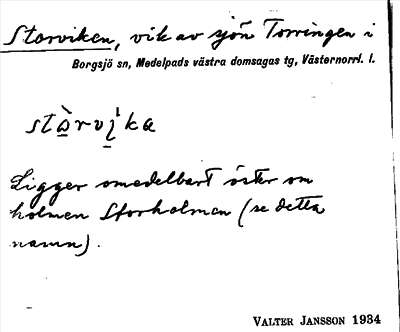 Storviken, vik av sjön Torringen i
Borgsjö sn, Medelpads västra domsagas tg, Västernorrl. l.
stò̱rvi̱ka
Ligger omedelbart öster om
holmen Storholmen (se detta
namn).
VALTER JANSSON 1934